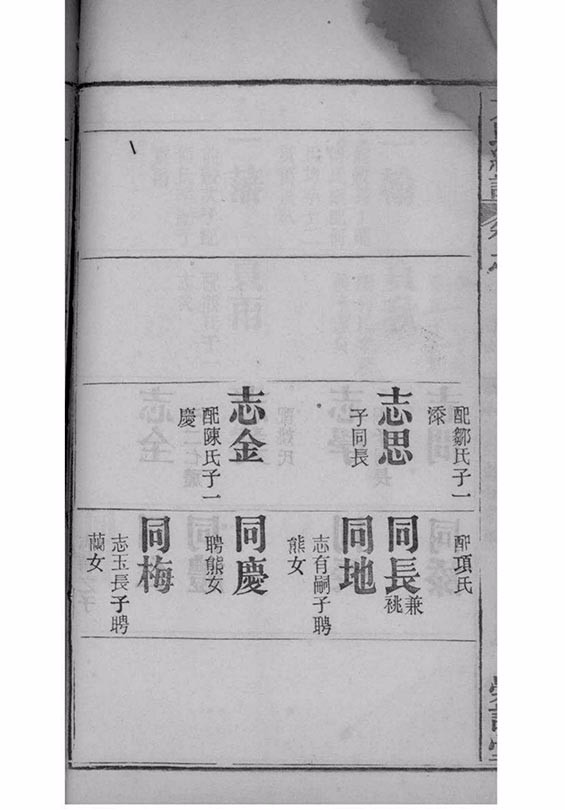 配鄒氏子一
添
志思
子同長
志金
配陳氏子一
慶
配項氏
同長
兼祧
同地
志有嗣子聘
熊女
同慶
聘熊女
同梅
志玉長子聘
蘭女